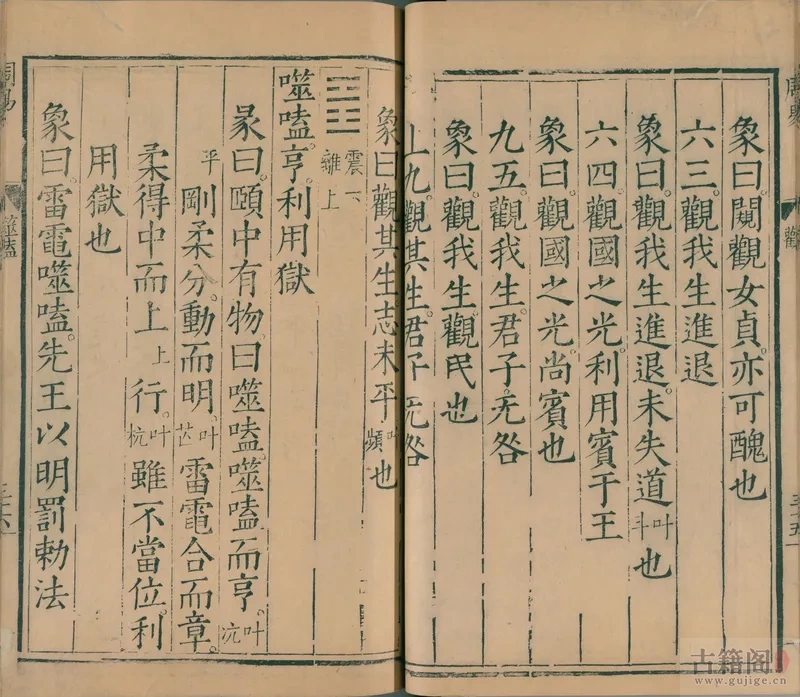 象曰闚觀女貞亦可醜也
六三觀我生進退
象曰觀我生進退未失道叶斗也
六四觀國之光利用賓于王
象曰觀國之光尚賓也
九五觀我生君子无咎
象曰觀我生觀民也
上九觀其生君子无咎
象曰觀其生志未平叶頻也
震下
離上
噬嗑亨利用獄
彖曰頤中有物曰噬嗑噬嗑而亨叶亢
平剛柔分動而明叶芒雷電合而章
柔得中而上上行叶杭雖不當位利
用獄也
象曰雷電噬嗑先王以明罰勅法
觀
三十五
周易
噬嗑
三十六
古籍阁
www.gujige.cn